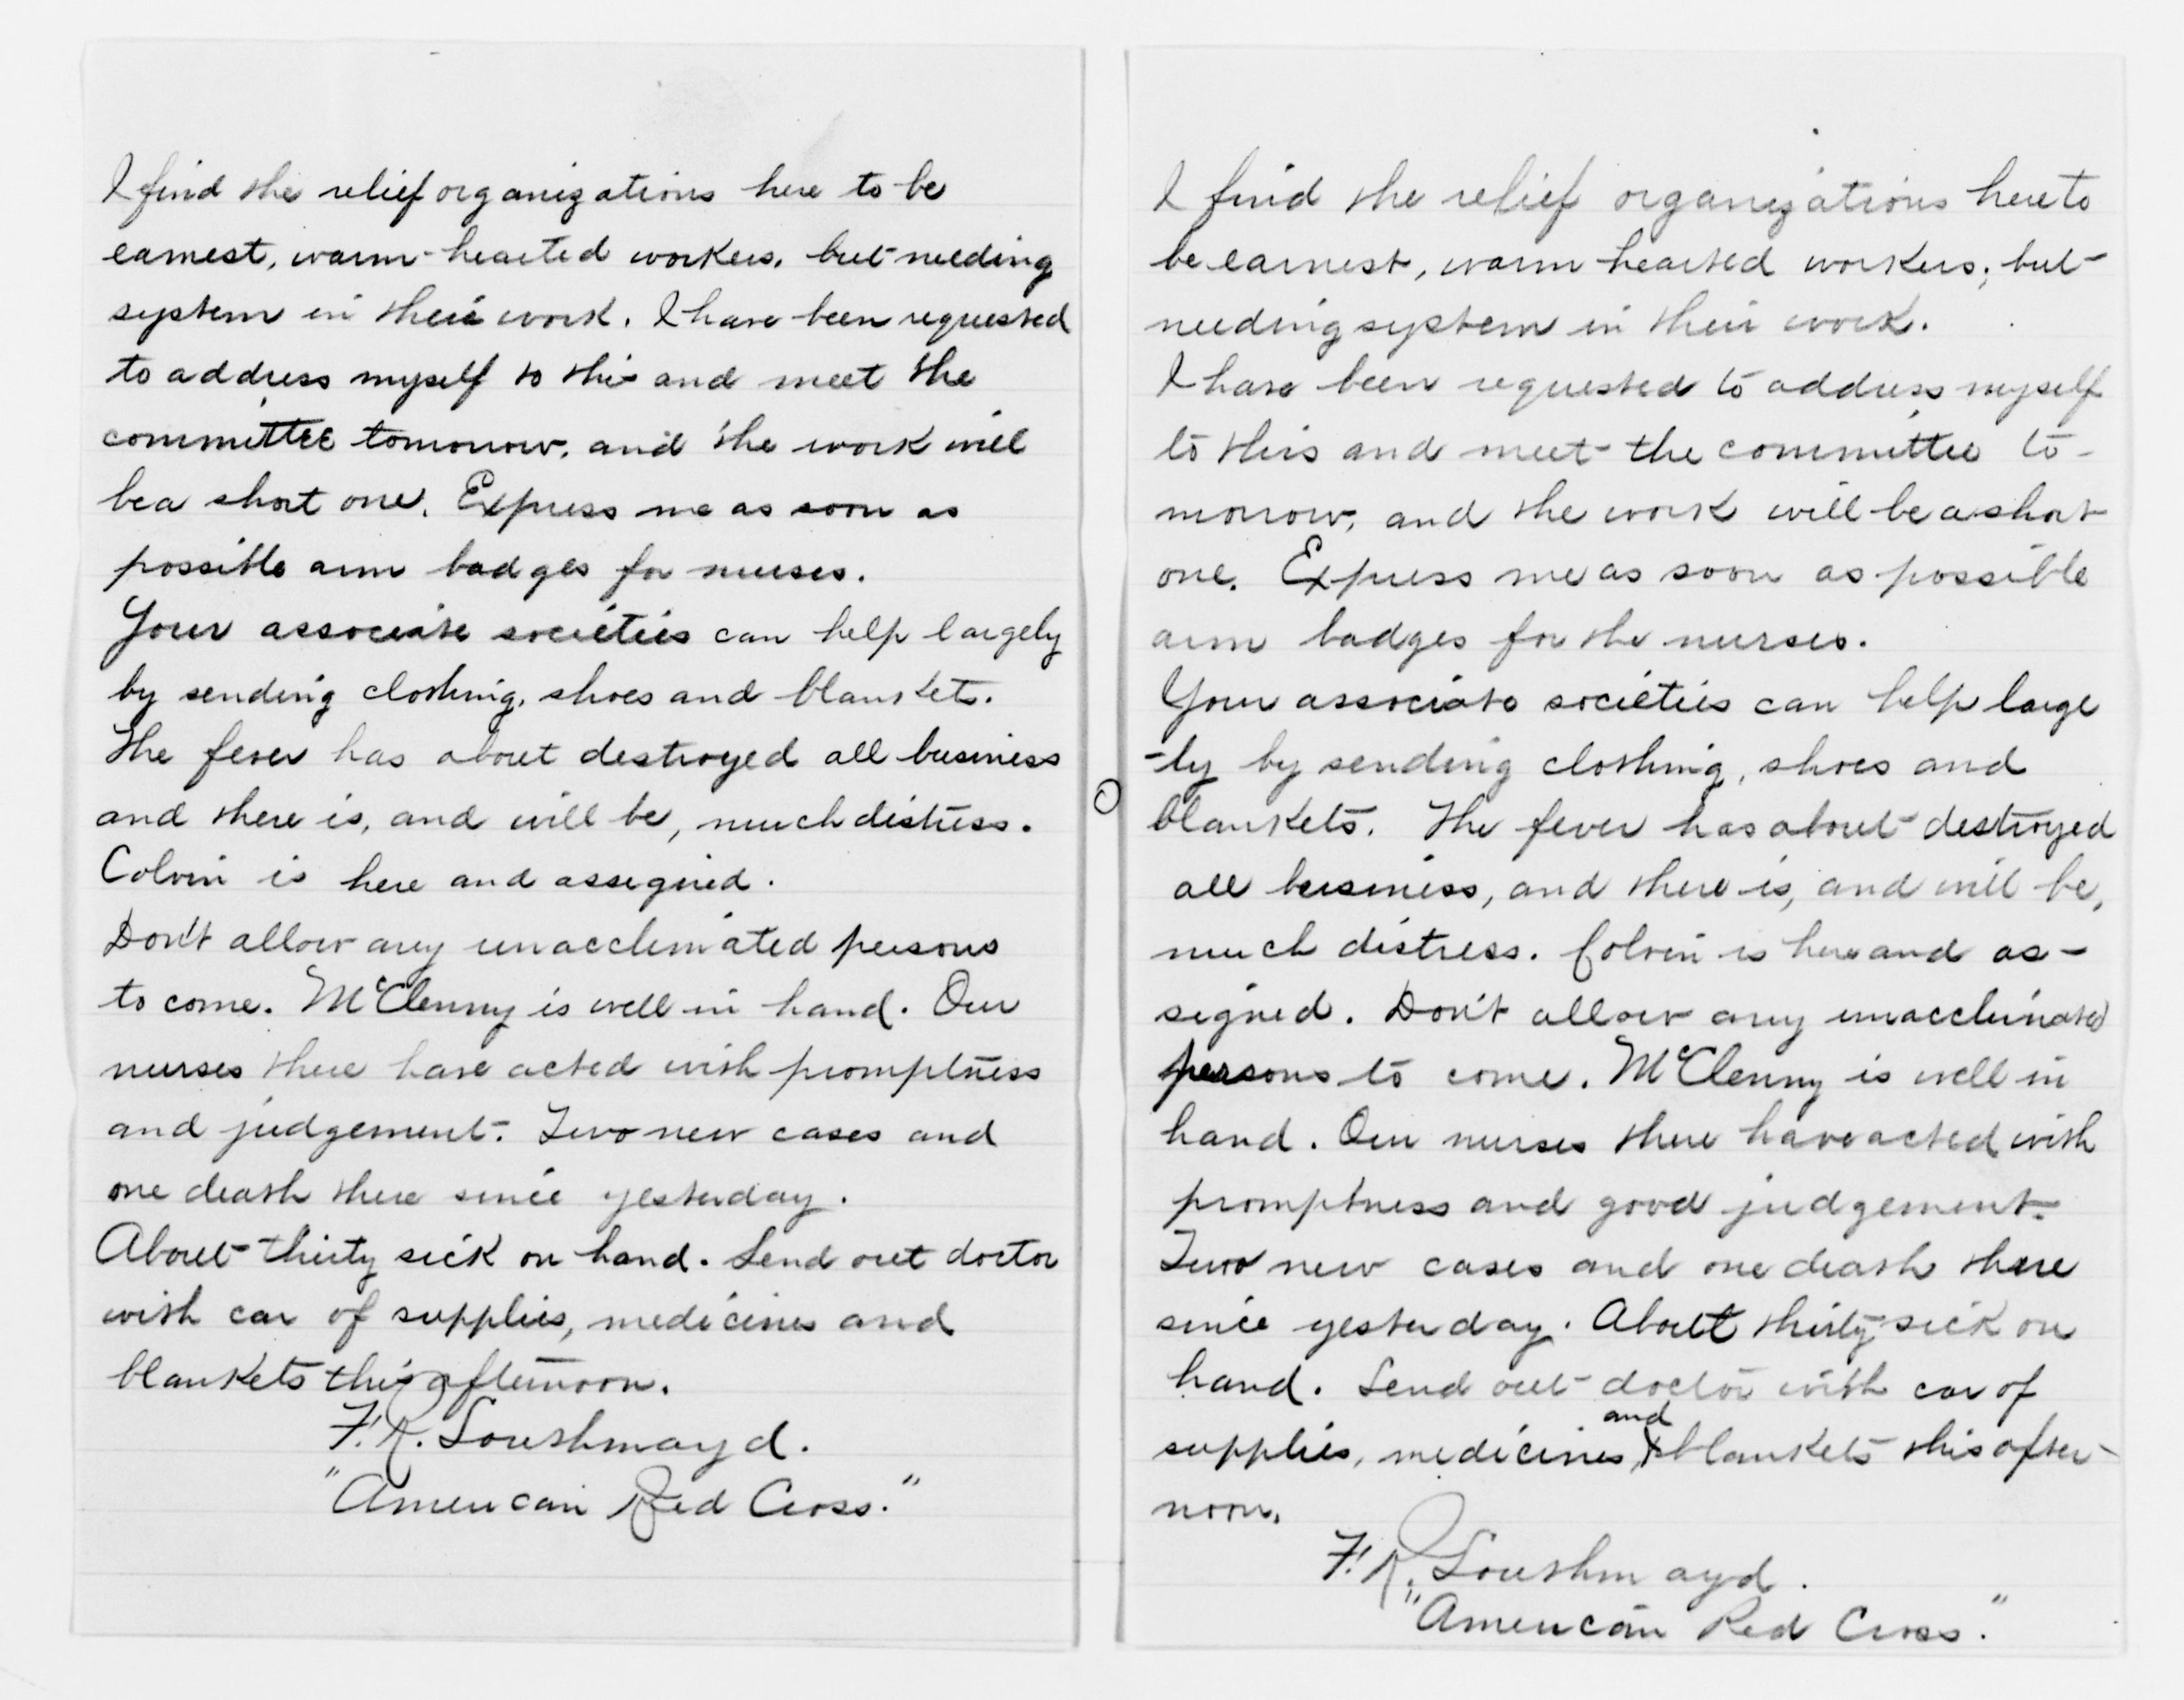 I find the relief organizations here to be
earnest, warm-hearted workers, but needing
system in their work. I have been requested
to address myself to this and meet the
committee tomorrow, and the work will
be a short one. Express me as soon as
possible arm badges for nurses.
Your associate societies can help largely
by sending clothing, shoes and blankets.
The fever has about destroyed all business
and there is, and will be, much distress.
Colvin is here and assigned.
Don't allow any unacclimated persons
to come. McClenny is well in hand. Our
nurses there have acted with promptness
and judgement. Two new cases and
one death there since yesterday.
About thirty sick on hand. Send out doctor
with car of supplies, medicines and
blankets this afternoon.
F. R. Southmayd.
"American Red Cross."
I find the relief organizations here to
be earnest, warm hearted workers; but
needing system in their work.
I have been requested to address myself
to this and meet the committee to-
morrow, and the work will be a short
one. Express me as soon as possible
arm badges for the nurses.
Your associate societies can help large
-ly by sending clothing, shoes and
blankets. The fever has about destroyed
all business, and there is, and will be,
much distress. Colvin is here and as-
signed. Don't allow any unacclimated
persons to come. McClenny is well in
hand. Our nurses there have acted with
promptness and good judgement.
Two new cases and one death there
since yesterday. About thirty sick on
hand. Send out doctor with car of
supplies, medicines, and blankets this after-
noon.
F. R. Southmayd.
"American Red Cross."